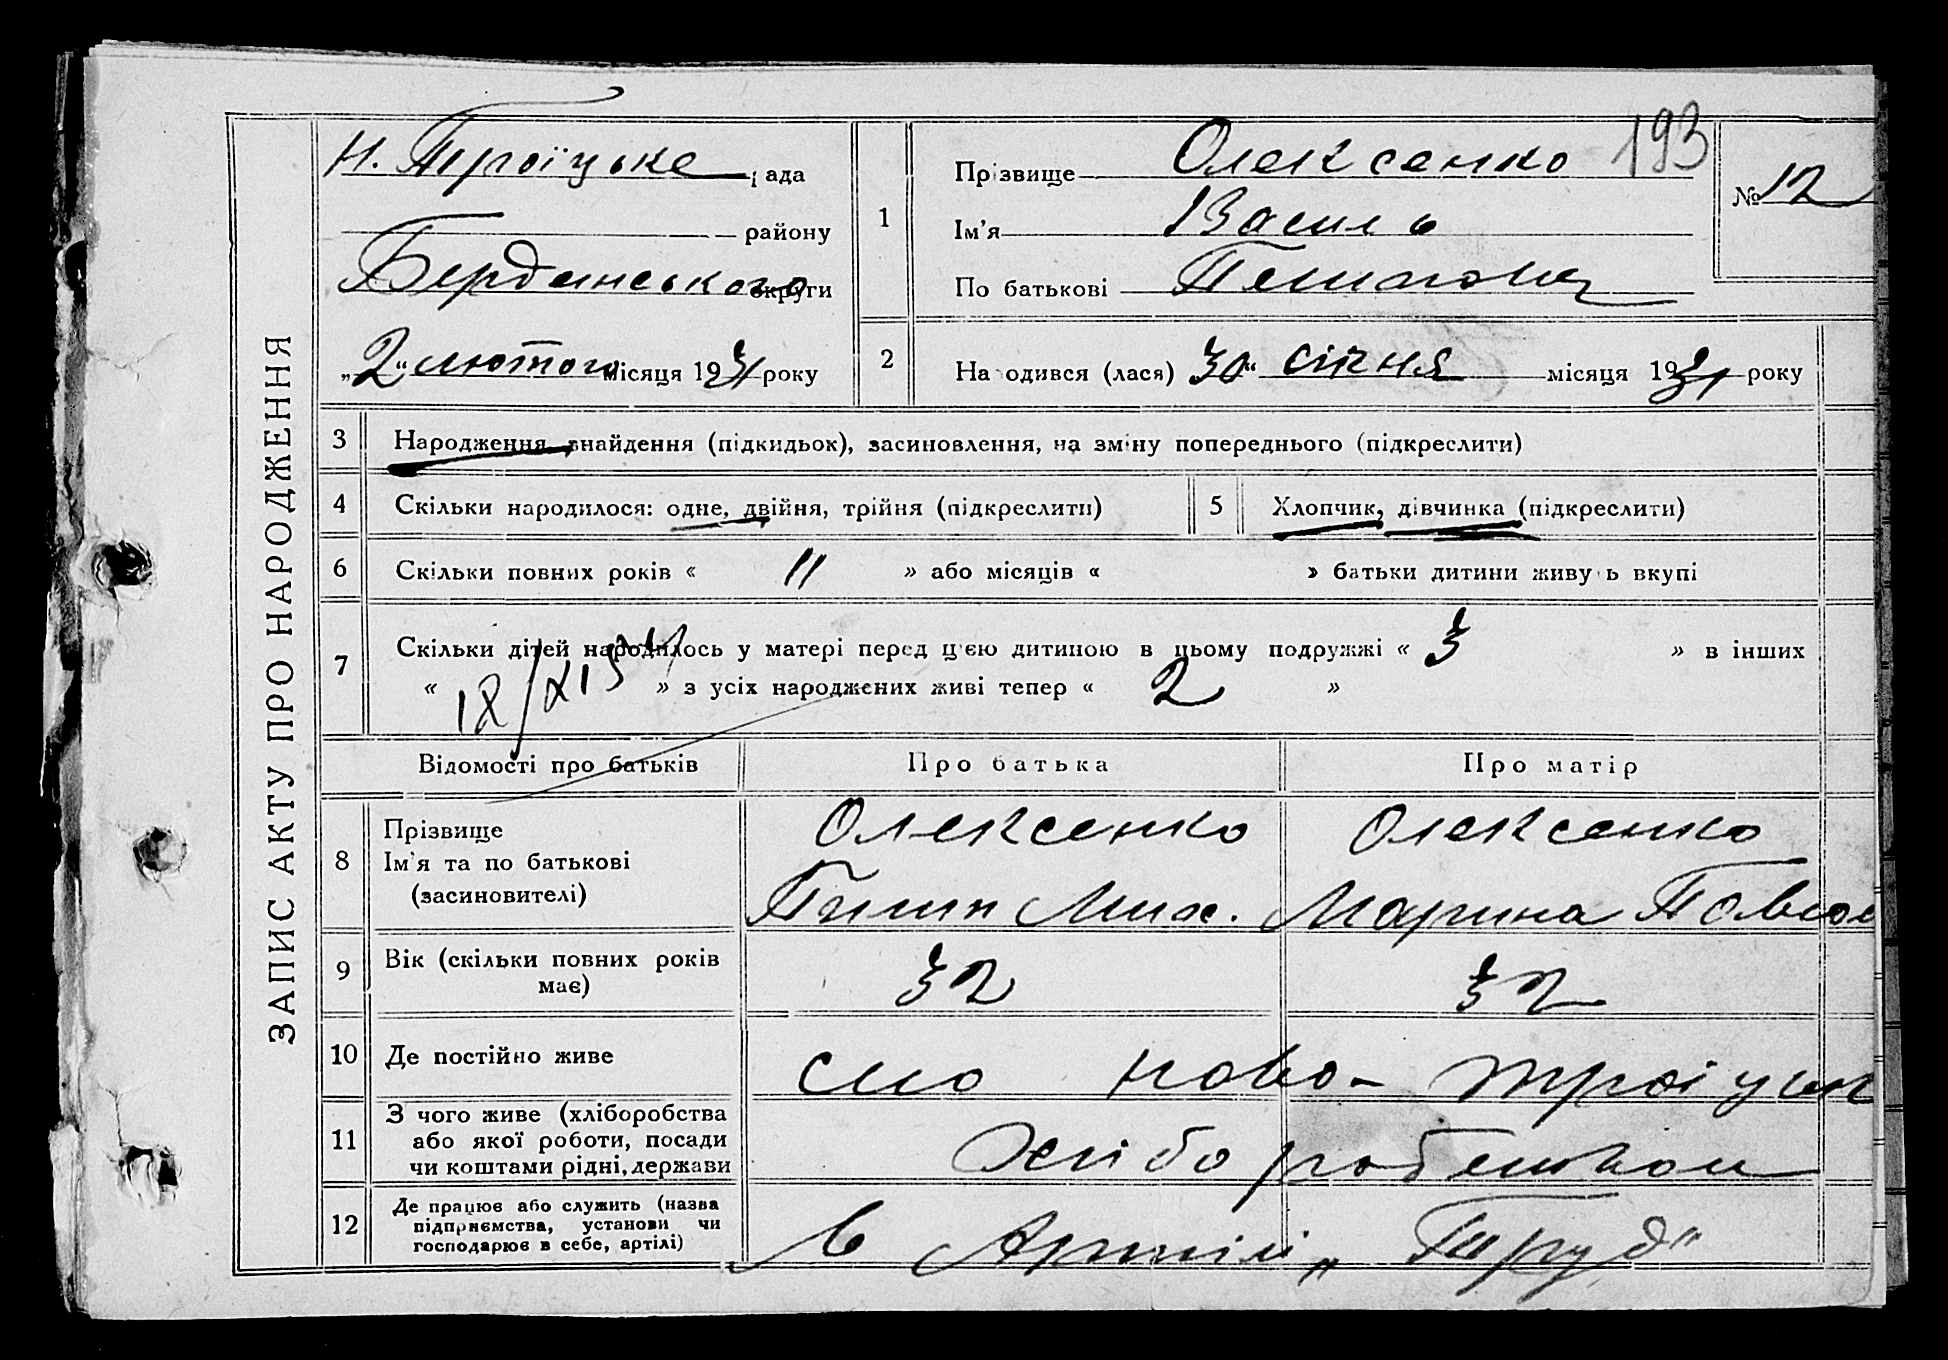 ЗАПИС АКТУ ПРО НАРОДЖЕННЯ
193
Н. Троїцьке рада
району
Бердянського округи
„2“ лютого місяця 1931 року
1
Прізвище Олексенко
Ім'я Василь
По батькові
№ 12
2 Народився (лася) „30“ січня місяця 1931 року
3 Народження, знайдення (підкидьок), засиновлення, на зміну попереднього (підкреслити)
4 Скільки народилося: одне, двійня, трійня (підкреслити)
5 Хлопчик, дівчинка (підкреслити)
6 Скільки повних років « 11 » або місяців « » батьки дитини живуть вкупі
7 Скільки дітей народилось у матері перед цією дитиною в цьому подружжі « 3 » в інших
« » з усіх народжених живі тепер « 2 »
Відомості про батьків Про батька Про матір
8 Прізвище
Ім'я та по батькові
(засиновителі)
Олексенко
Пилип Мих.
Олексенко
Марина Павлов
9 Вік (скільки повних років
має)
32 32
10 Де постійно живе
село Ново-Троїцьк
11 З чого живе (хліборобства
або якої роботи, посади
чи коштами рідні, держави
12 Де працює або служить (назва
підприємства, установи чи
господарює в себе, артілі)
В Артілі „Труд“